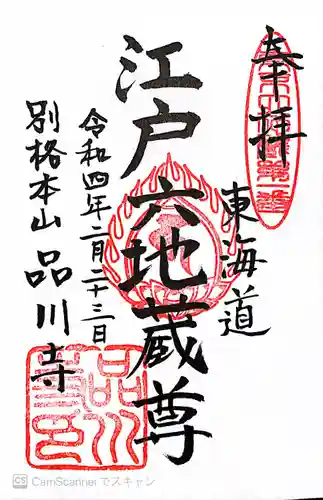 奉拝
東海道
江戸六地蔵尊
令和四年二月二十三日
別格本山 品川寺
CS CamScanner でスキャン